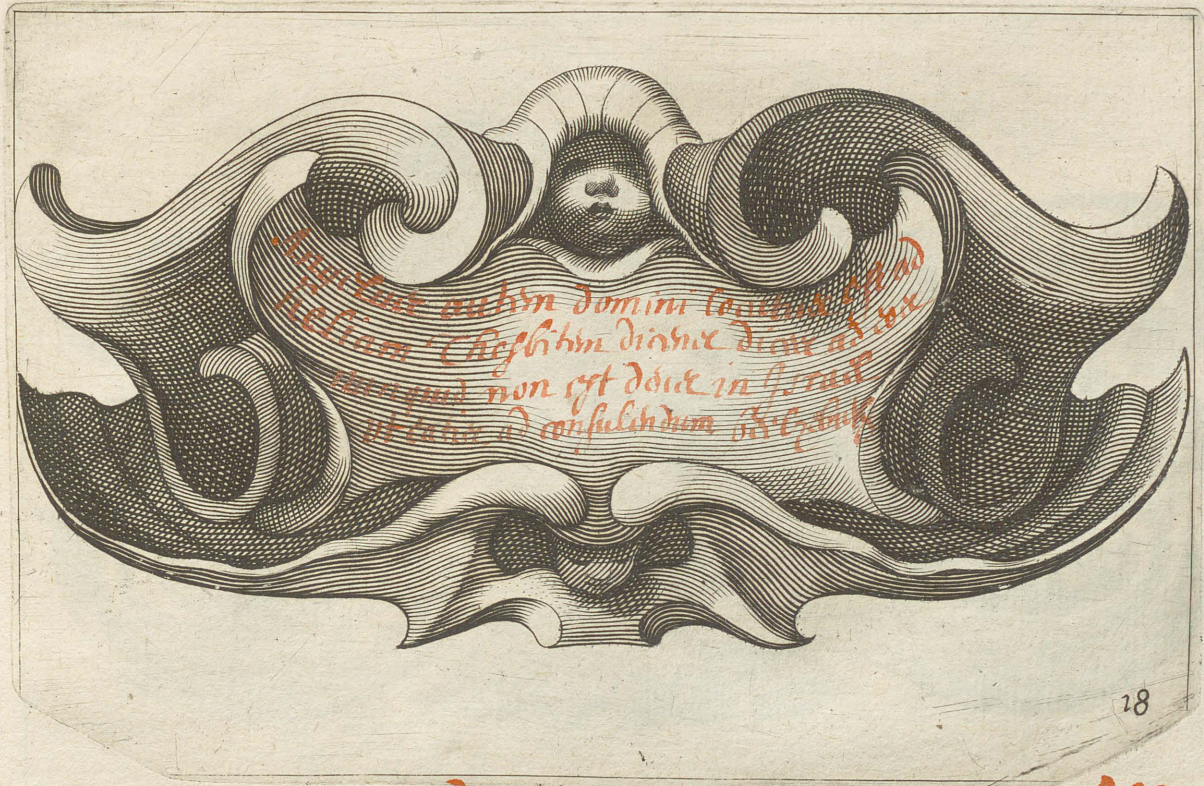 Angelus autem domini locutus est ad
Heliam Thesbitem dicens dicas ad eos
nunquid non est deus in Israel
ut eatis ad consulendum
18